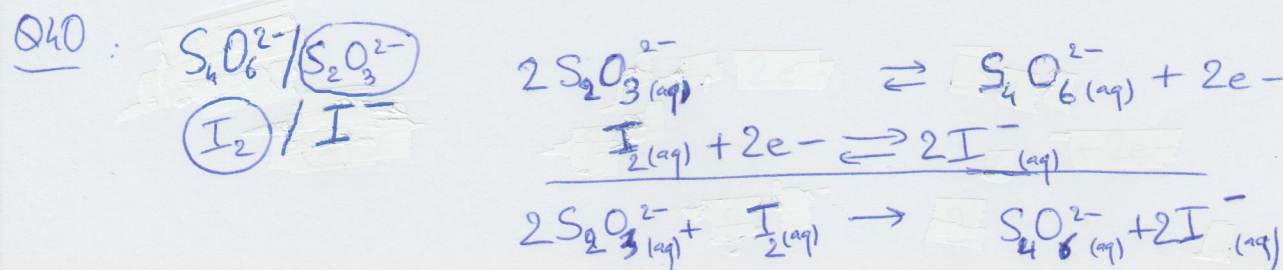 Q40 : S₄O₆²⁻/S₂O₃²⁻
I₂/I⁻
2S₂O₃²⁻(aq) ⇌ S₄O₆²⁻(aq) + 2e-
I₂(aq) + 2e- ⇌ 2I⁻(aq)
2S₂O₃²⁻(aq) + I₂(aq) → S₄O₆²⁻(aq) + 2I⁻(aq)